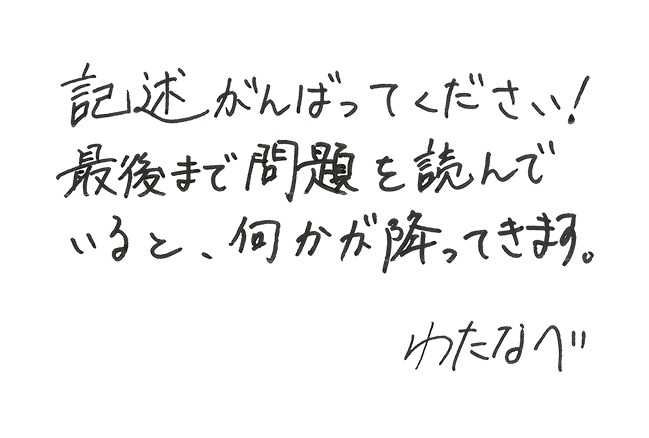 記述がんばってください!
最後まで問題を読んで
いると、何かが降ってきます。
わたなべ